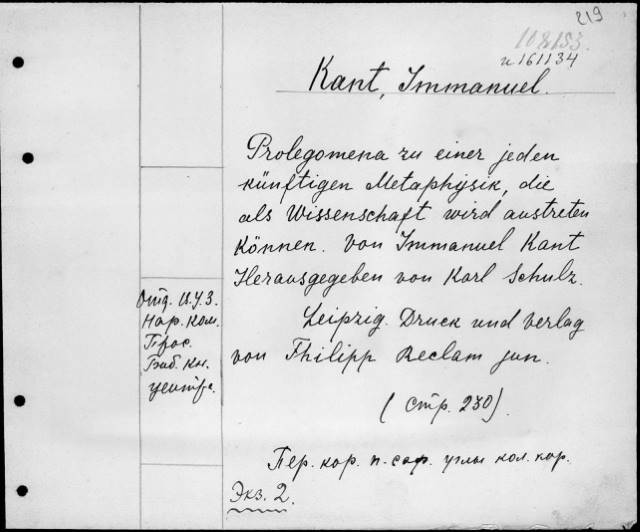 219
108153.
и 161134
Kant, Immanuel.
Prolegomena zu einer jeden
künftigen Metaphysik, die
als Wissenschaft wird austreten
können. Von Immanuel Kant
Herausgegeben von Karl Schulz.
Leipzig. Druck und Verlag
von Philipp Reclam jun.
(Стр. 230).
Отд. И.У.З.
Нар. Ком.
Прос.
Биб. Кн.
Пер. кор. п. саф. углы кол. кор.
Экз. 2.